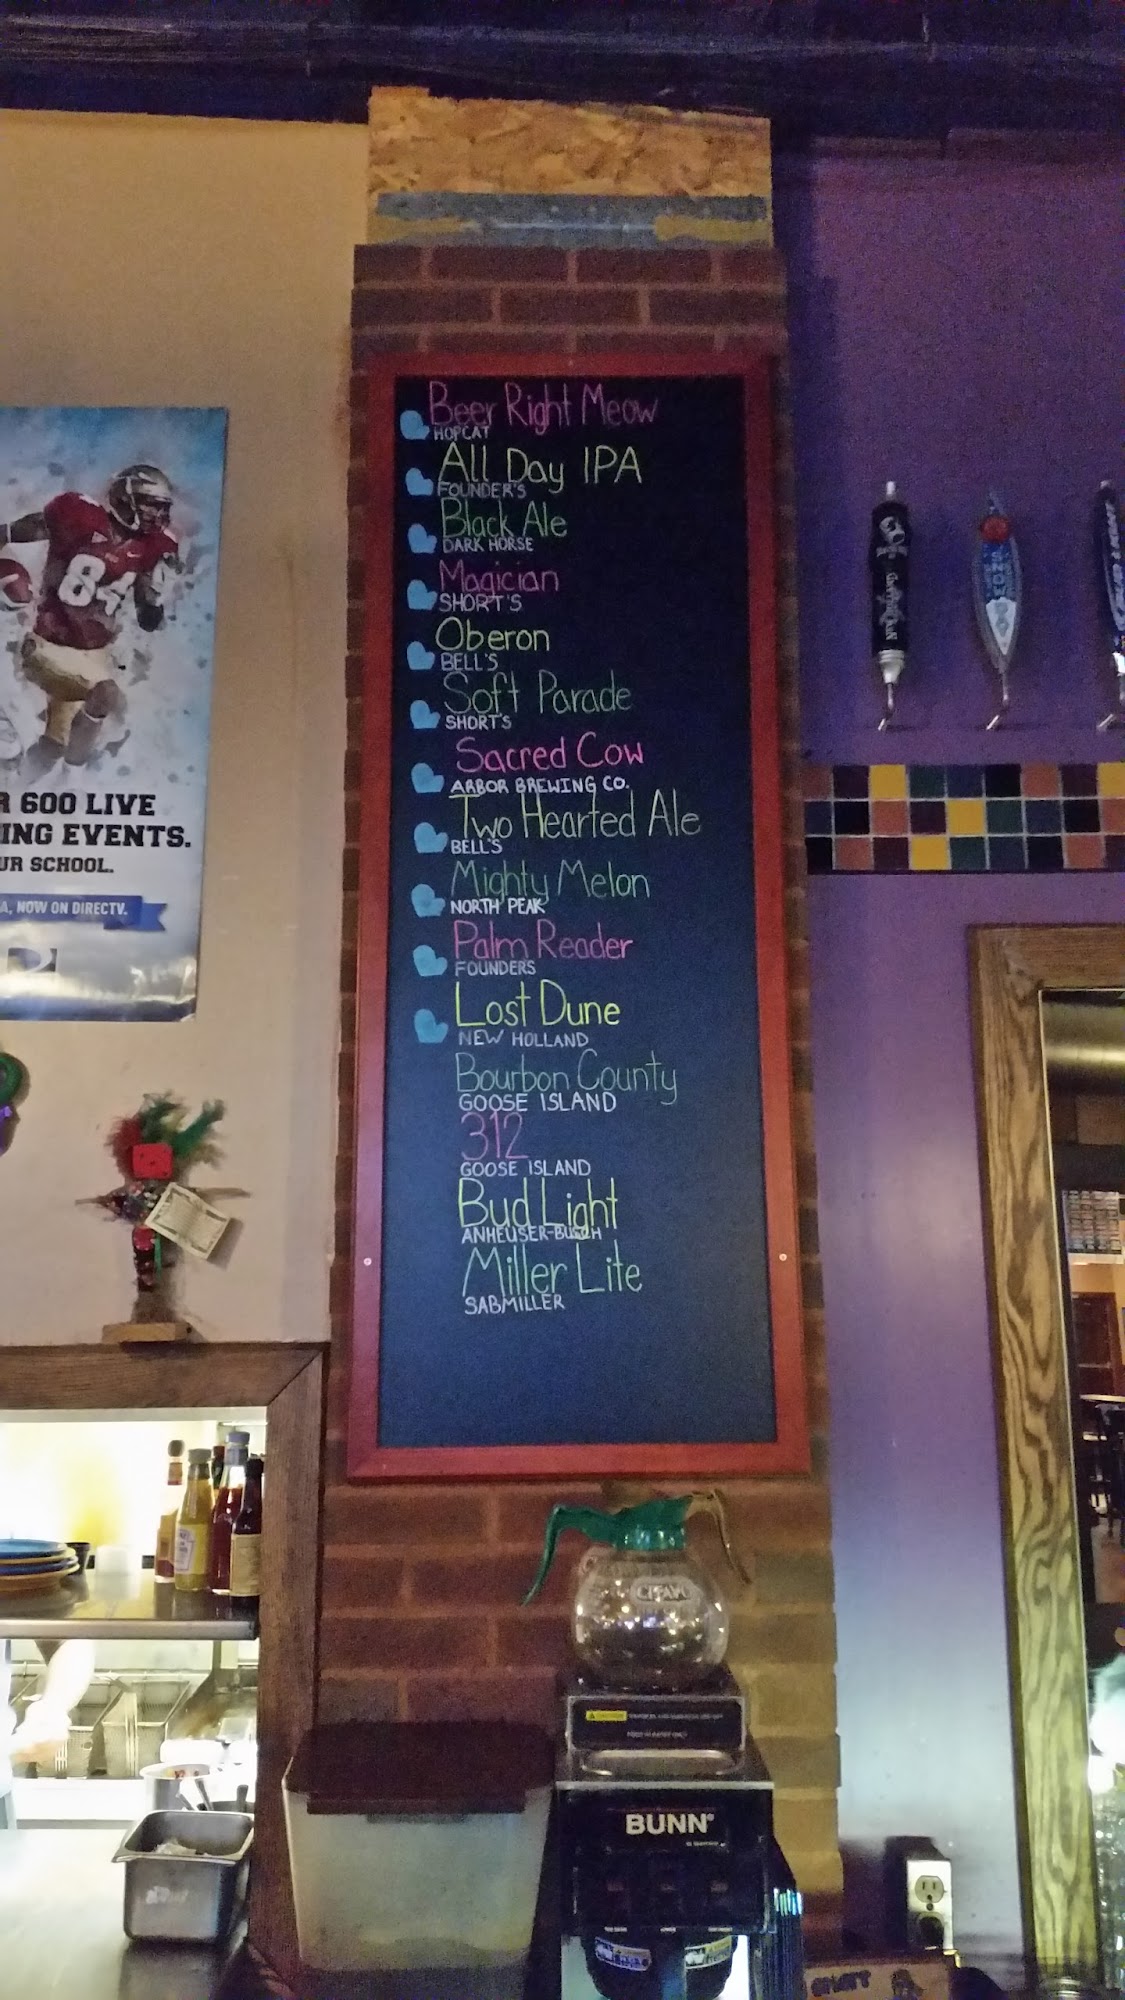 Beer Right Meow
HOPCAT
All Day IPA
FOUNDER'S
Black Ale
DARK HORSE
Magician
SHORT'S
Oberon
BELL'S
Soft Parade
SHORT'S
Sacred Cow
ARBOR BREWING CO.
Two Hearted Ale
BELL'S
Mighty Melon
NORTH PEAK
Palm Reader
FOUNDERS
Lost Dune
NEW HOLLAND
Bourbon County
GOOSE ISLAND
312
GOOSE ISLAND
Bud Light
ANHEUSER-BUSCH
Miller Lite
SABMILLER
84
R 600 LIVE
ING EVENTS.
UR SCHOOL.
A, NOW ON DIRECTV.
CAUTION
BUNN